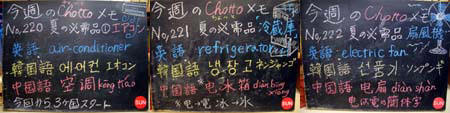 今週のChottoメモ
No,220 夏の必需品① エアコン
英語 air-conditioner
韓国語 에어컨 エオコン
中国語 空调 kōng tiáo
今回から3ヶ国スタート
SUN
今週のChottoメモ
No,221 夏の必需品 冷蔵庫
英語 refrigerator
韓国語 냉장고 ネンジャンゴ
中国語 电冰箱 diàn bīng xiāng
※电→電 冰→氷
SUN
今週のChottoメモ
No,222 夏の必需品 扇風機
英語 electric fan
韓国語 선풍기 ソンプンギ
中国語 电扇 diàn shàn
电は電の簡体字
SUN